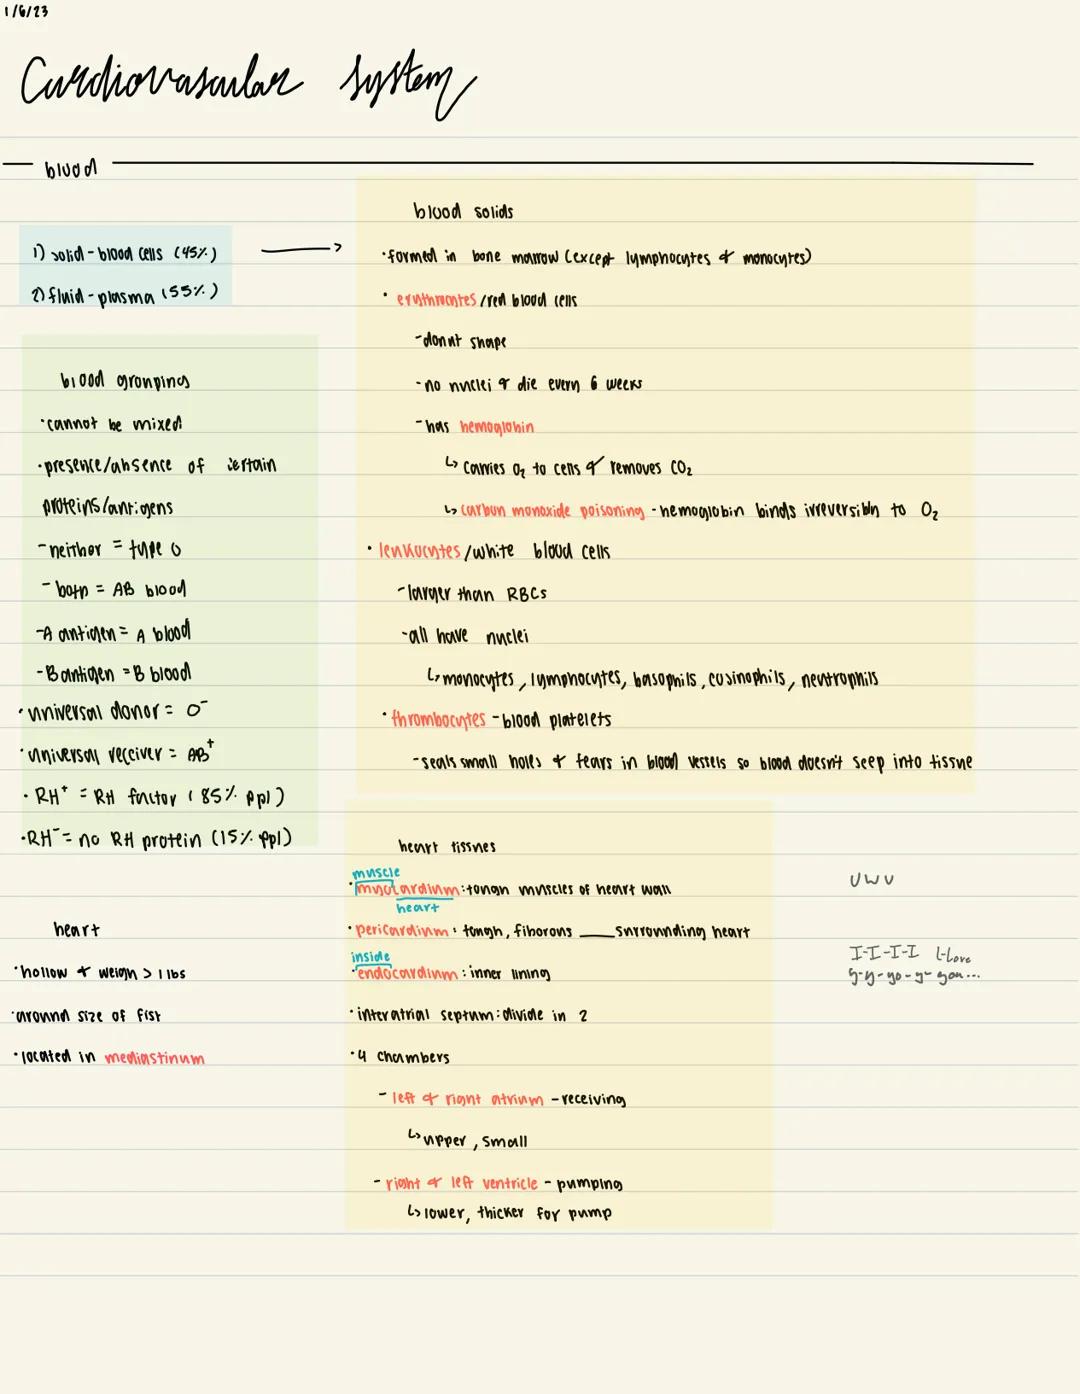 1/6/23
Cardiovascular System
blood
1) solid - blood cells (45%)
2) fluid - plasma (55%)
blood groupings
· cannot be mixed
· presence/absence of certain
proteins/antigens
- neither = type O
- both = AB blood
- A antigen = A blood
- B antigen = B blood
· universal donor = O⁻
· universal receiver = AB⁺
· RH⁺ = RH factor (85% ppl)
· RH⁻ = no RH protein (15% ppl)
heart
· hollow & weigh > 1 lbs
· around size of fist
· located in mediastinum
blood solids
· formed in bone marrow (except lymphocytes & monocytes)
· erythrocytes / red blood cells
- donut shape
- no nuclei & die every 6 weeks
- has hemoglobin
↳ carries O₂ to cells & removes CO₂
↳ carbon monoxide poisoning - hemoglobin binds irreversibly to O₂
· leukocytes / white blood cells
- larger than RBCs
- all have nuclei
↳ monocytes, lymphocytes, basophils, eosinophils, neutrophils
· thrombocytes - blood platelets
- seals small holes & tears in blood vessels so blood doesn't seep into tissue
heart tissues
muscle
· myocardium: tough muscles of heart wall
heart
· pericardium: tough, fiborous ____ surrounding heart
inside
· endocardium: inner lining
· interatrial septum: divide in 2
· 4 chambers
- left & right atrium - receiving
↳ upper, small
- right & left ventricle - pumping
↳ lower, thicker for pump
UWU
I-I-I-I l-love
y-y-yo-y-you...